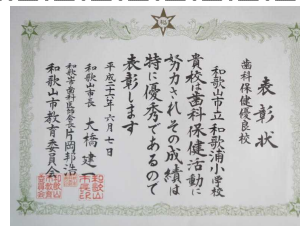 表彰状
歯科保健優良校
和歌山市立和歌浦小学校
貴校は歯科保健活動に
努力されその成績は
特に優秀であるので
表彰します
平成二十六年六月七日
和歌山市長 大橋建一
和歌山市歯科医師会会長 片岡邦浩
和歌山市教育委員会